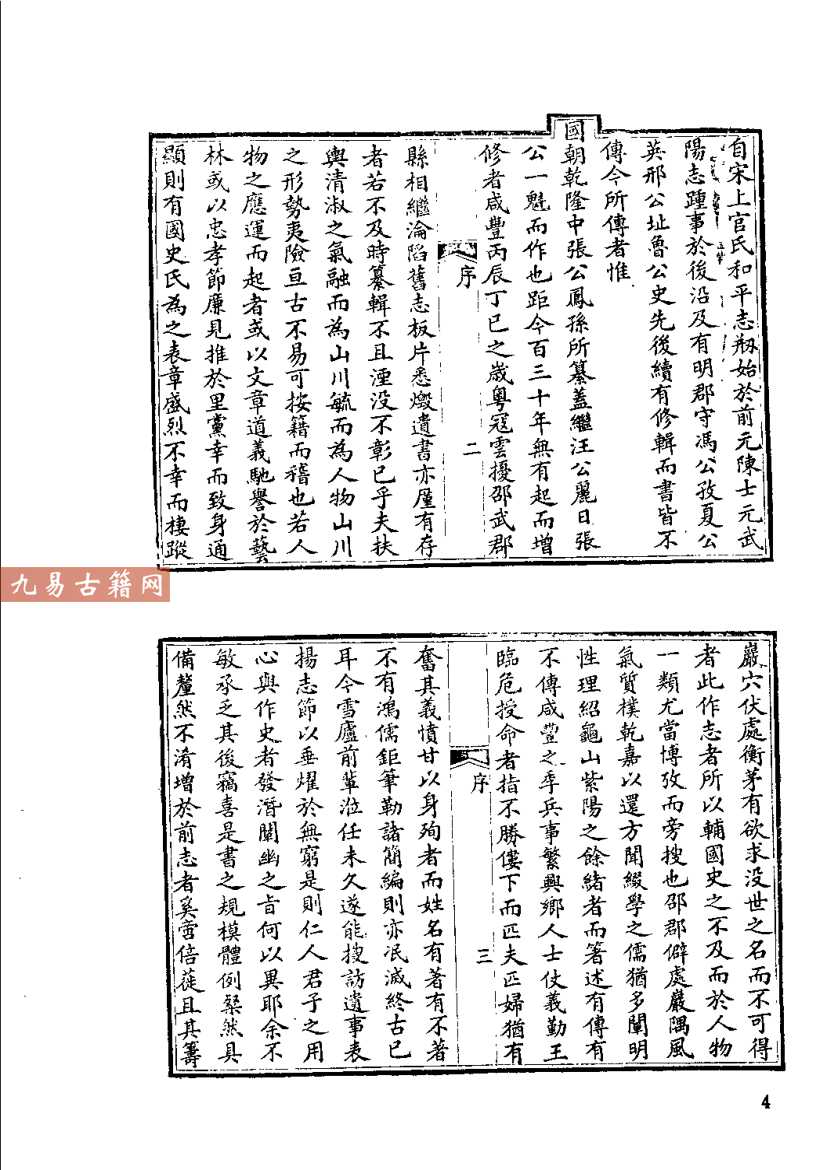 自宋上官氏和平志刱始於前元陳士元武
陽志踵事於後沿及有明郡守馮公孜夏公
英邢公址魯公史先後續有修輯而書皆不
傳今所傳者惟
國朝乾隆中張公鳳孫所纂蓋繼汪公麗日張
公一魁而作也距今百三十年無有起而增
修者咸豐丙辰丁巳之歲粵寇雲擾邵武郡
序
二
縣相繼淪陷舊志板片悉燬遺書亦厪有存
者若不及時纂輯不且湮没不彰已乎夫扶
輿清淑之氣融而為山川毓而為人物山川
之形勢夷險亘古不易可按籍而稽也若人
物之應運而起者或以文章道義馳譽於藝
林或以忠孝節廉見推於里黨幸而致身通
顯則有國史氏為之表章盛烈不幸而棲蹤
巖穴伏處衡茅有欲求没世之名而不可得
者此作志者所以輔國史之不及而於人物
一類尤當博攷而旁搜也邵郡僻處巖隅風
氣質樸乾嘉以還方聞綴學之儒猶多闡明
性理紹龜山紫陽之餘緒者而箸述有傳有
不傳咸豐之季兵事繁興鄉人士仗義勤王
臨危授命者指不勝僂下而匹夫匹婦猶有
序
三
奮其義憤甘以身殉者而姓名有著有不著
不有鴻儒鉅筆勒諸簡編則亦泯滅終古已
耳今雪廬前輩涖任未久遂能搜訪遺事表
揚志節以垂燿於無窮是則仁人君子之用
心與作史者發潛闡幽之旨何以異耶余不
敏承乏其後竊喜是書之規模體例粲然具
備釐然不淆增於前志者奚啻倍蓰且其籌
九易古籍网
4